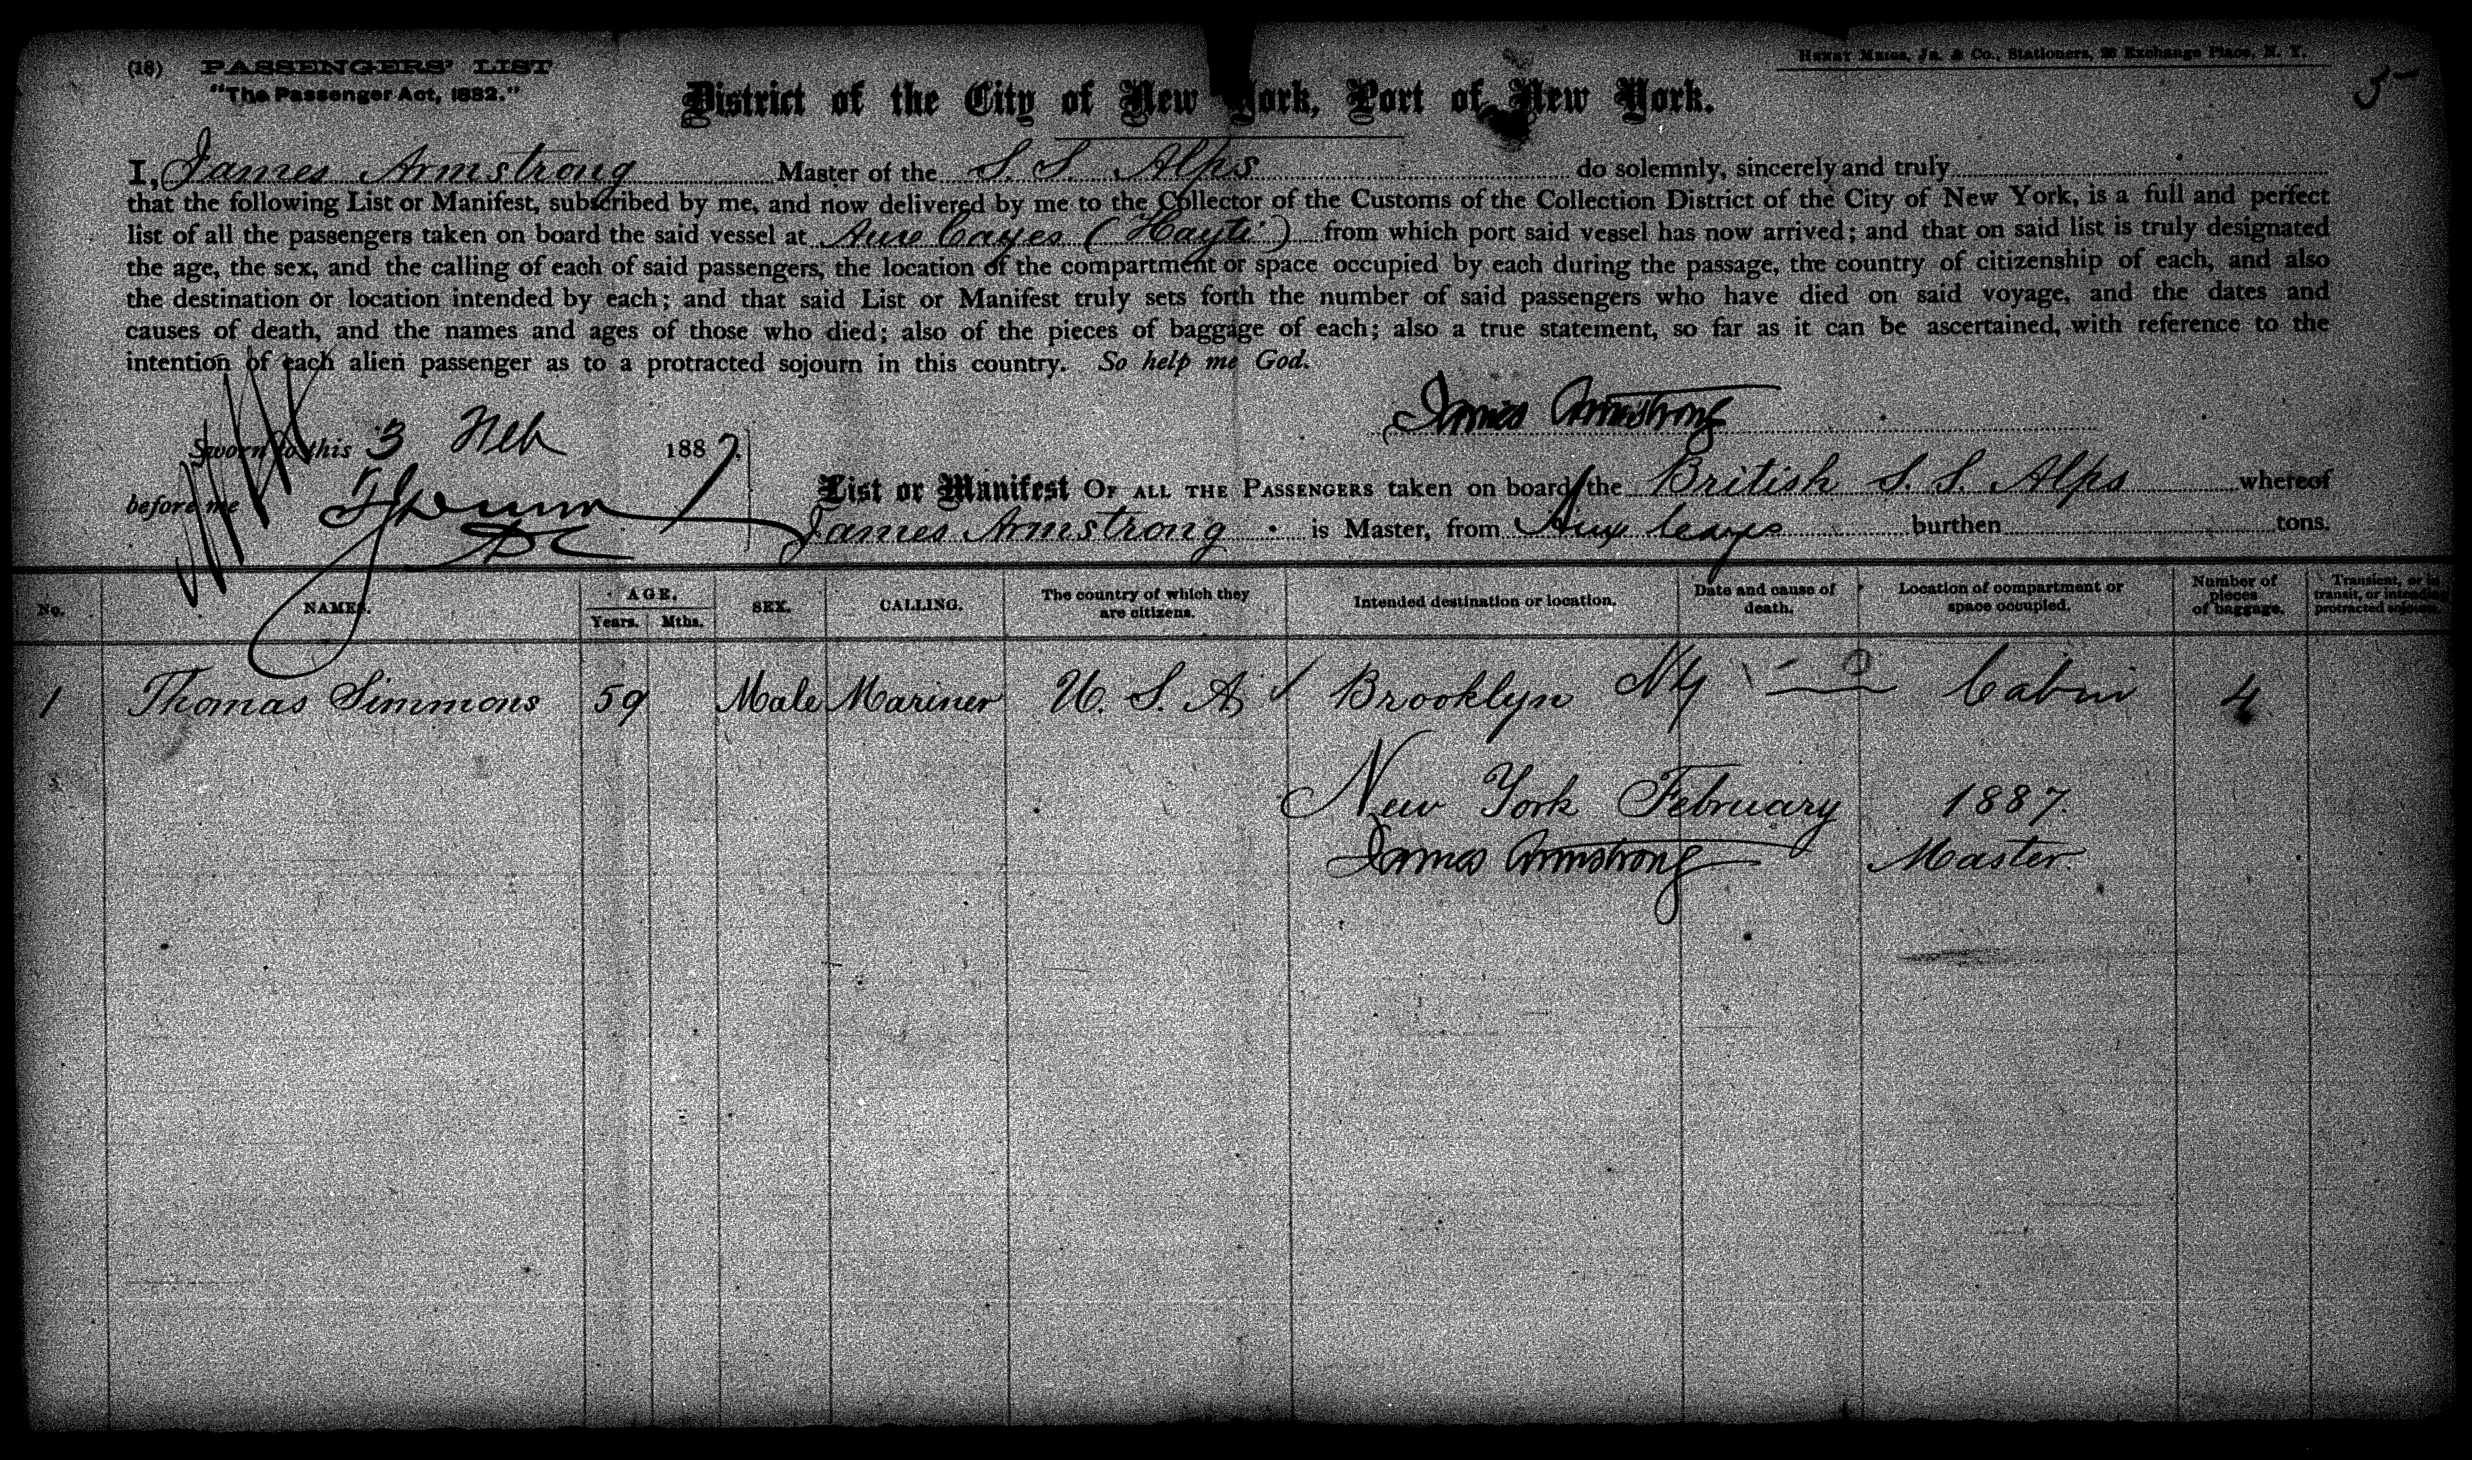 (18) PASSENGERS' LIST
"The Passenger Act, 1882."
HENRY MEIGS, JR. & CO., Stationers, Exchange Place, N. Y.
5
District of the City of New York, Port of New York.
I, James Armstrong Master of the S. S. Alps do solemnly, sincerely and truly
that the following List or Manifest, subscribed by me, and now delivered by me to the Collector of the Customs of the Collection District of the City of New York, is a full and perfect
list of all the passengers taken on board the said vessel at Aux Cayes (Hayti) from which port said vessel has now arrived; and that on said list is truly designated
the age, the sex, and the calling of each of said passengers, the location of the compartment or space occupied by each during the passage, the country of citizenship of each, and also
the destination or location intended by each; and that said List or Manifest truly sets forth the number of said passengers who have died on said voyage, and the dates and
causes of death, and the names and ages of those who died; also of the pieces of baggage of each; also a true statement, so far as it can be ascertained, with reference to the
intention of each alien passenger as to a protracted sojourn in this country. So help me God.
James Armstrong
Sworn to this 3 Feb 1887.
before me
List or Manifest OF ALL THE PASSENGERS taken on board the British S. S. Alps whereof
James Armstrong is Master, from Aux Cayes burthen tons.
No. NAMES. AGE. Years. Mths. SEX. CALLING. The country of which they are citizens. Intended destination or location. Date and cause of death. Location of compartment or space occupied. Number of pieces of baggage. Transient, or in transit, or intending protracted sojourn.
1 Thomas Simmons 59 Male Mariner U. S. A. Brooklyn NY Cabin 4
New York February 1887.
James Armstrong Master.